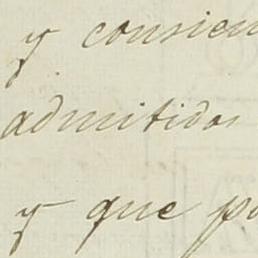 y consien
admitidos
y que po